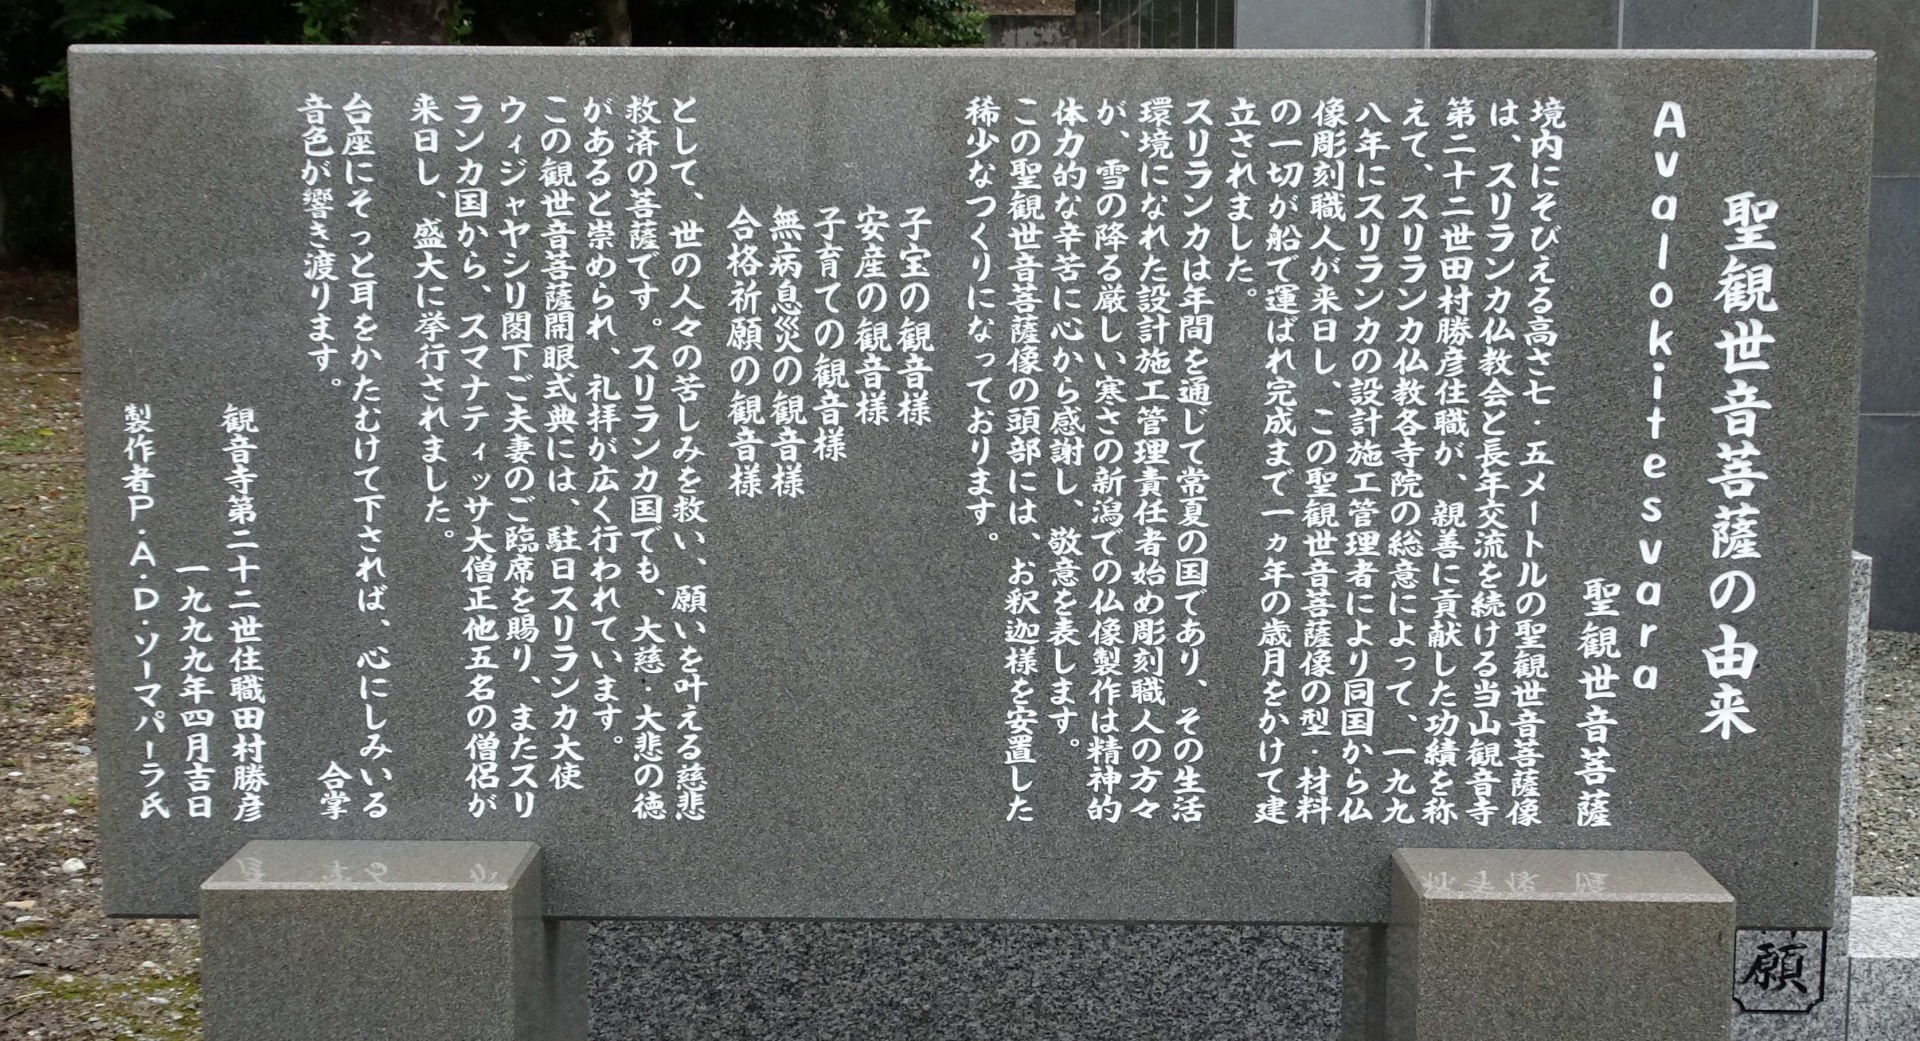 聖観世音菩薩の由来
Avalokitesvara
聖観世音菩薩
境内にそびえる高さ七・五メートルの聖観世音菩薩像
は、スリランカ仏教会と長年交流を続ける当山観音寺
第二十二世田村勝彦住職が、親善に貢献した功績を称
えて、スリランカ仏教各寺院の総意によって、一九九
八年にスリランカの設計施工管理者により同国から仏
像彫刻職人が来日し、この聖観世音菩薩像の型・材料
の一切が船で運ばれ完成まで一ヵ年の歳月をかけて建
立されました。
スリランカは年間を通じて常夏の国であり、その生活
環境になれた設計施工管理責任者始め彫刻職人の方々
が、雪の降る厳しい寒さの新潟での仏像製作は精神的
体力的な辛苦に心から感謝し、敬意を表します。
この聖観世音菩薩像の頭部には、お釈迦様を安置した
稀少なつくりになっております。
子宝の観音様
安産の観音様
子育ての観音様
無病息災の観音様
合格祈願の観音様
として、世の人々の苦しみを救い、願いを叶える慈悲
救済の菩薩です。スリランカ国でも、大慈・大悲の徳
があると崇められ、礼拝が広く行われています。
この観世音菩薩開眼式典には、駐日スリランカ大使
ウィジャヤシリ閣下ご夫妻のご臨席を賜り、またスリ
ランカ国から、スマナティッサ大僧正他五名の僧侶が
来日し、盛大に挙行されました。
台座にそっと耳をかたむけて下されば、心にしみいる
音色が響き渡ります。
合掌
観音寺第二十二世住職田村勝彦
一九九九年四月吉日
製作者P・A・D・ソーマパーラ氏
願